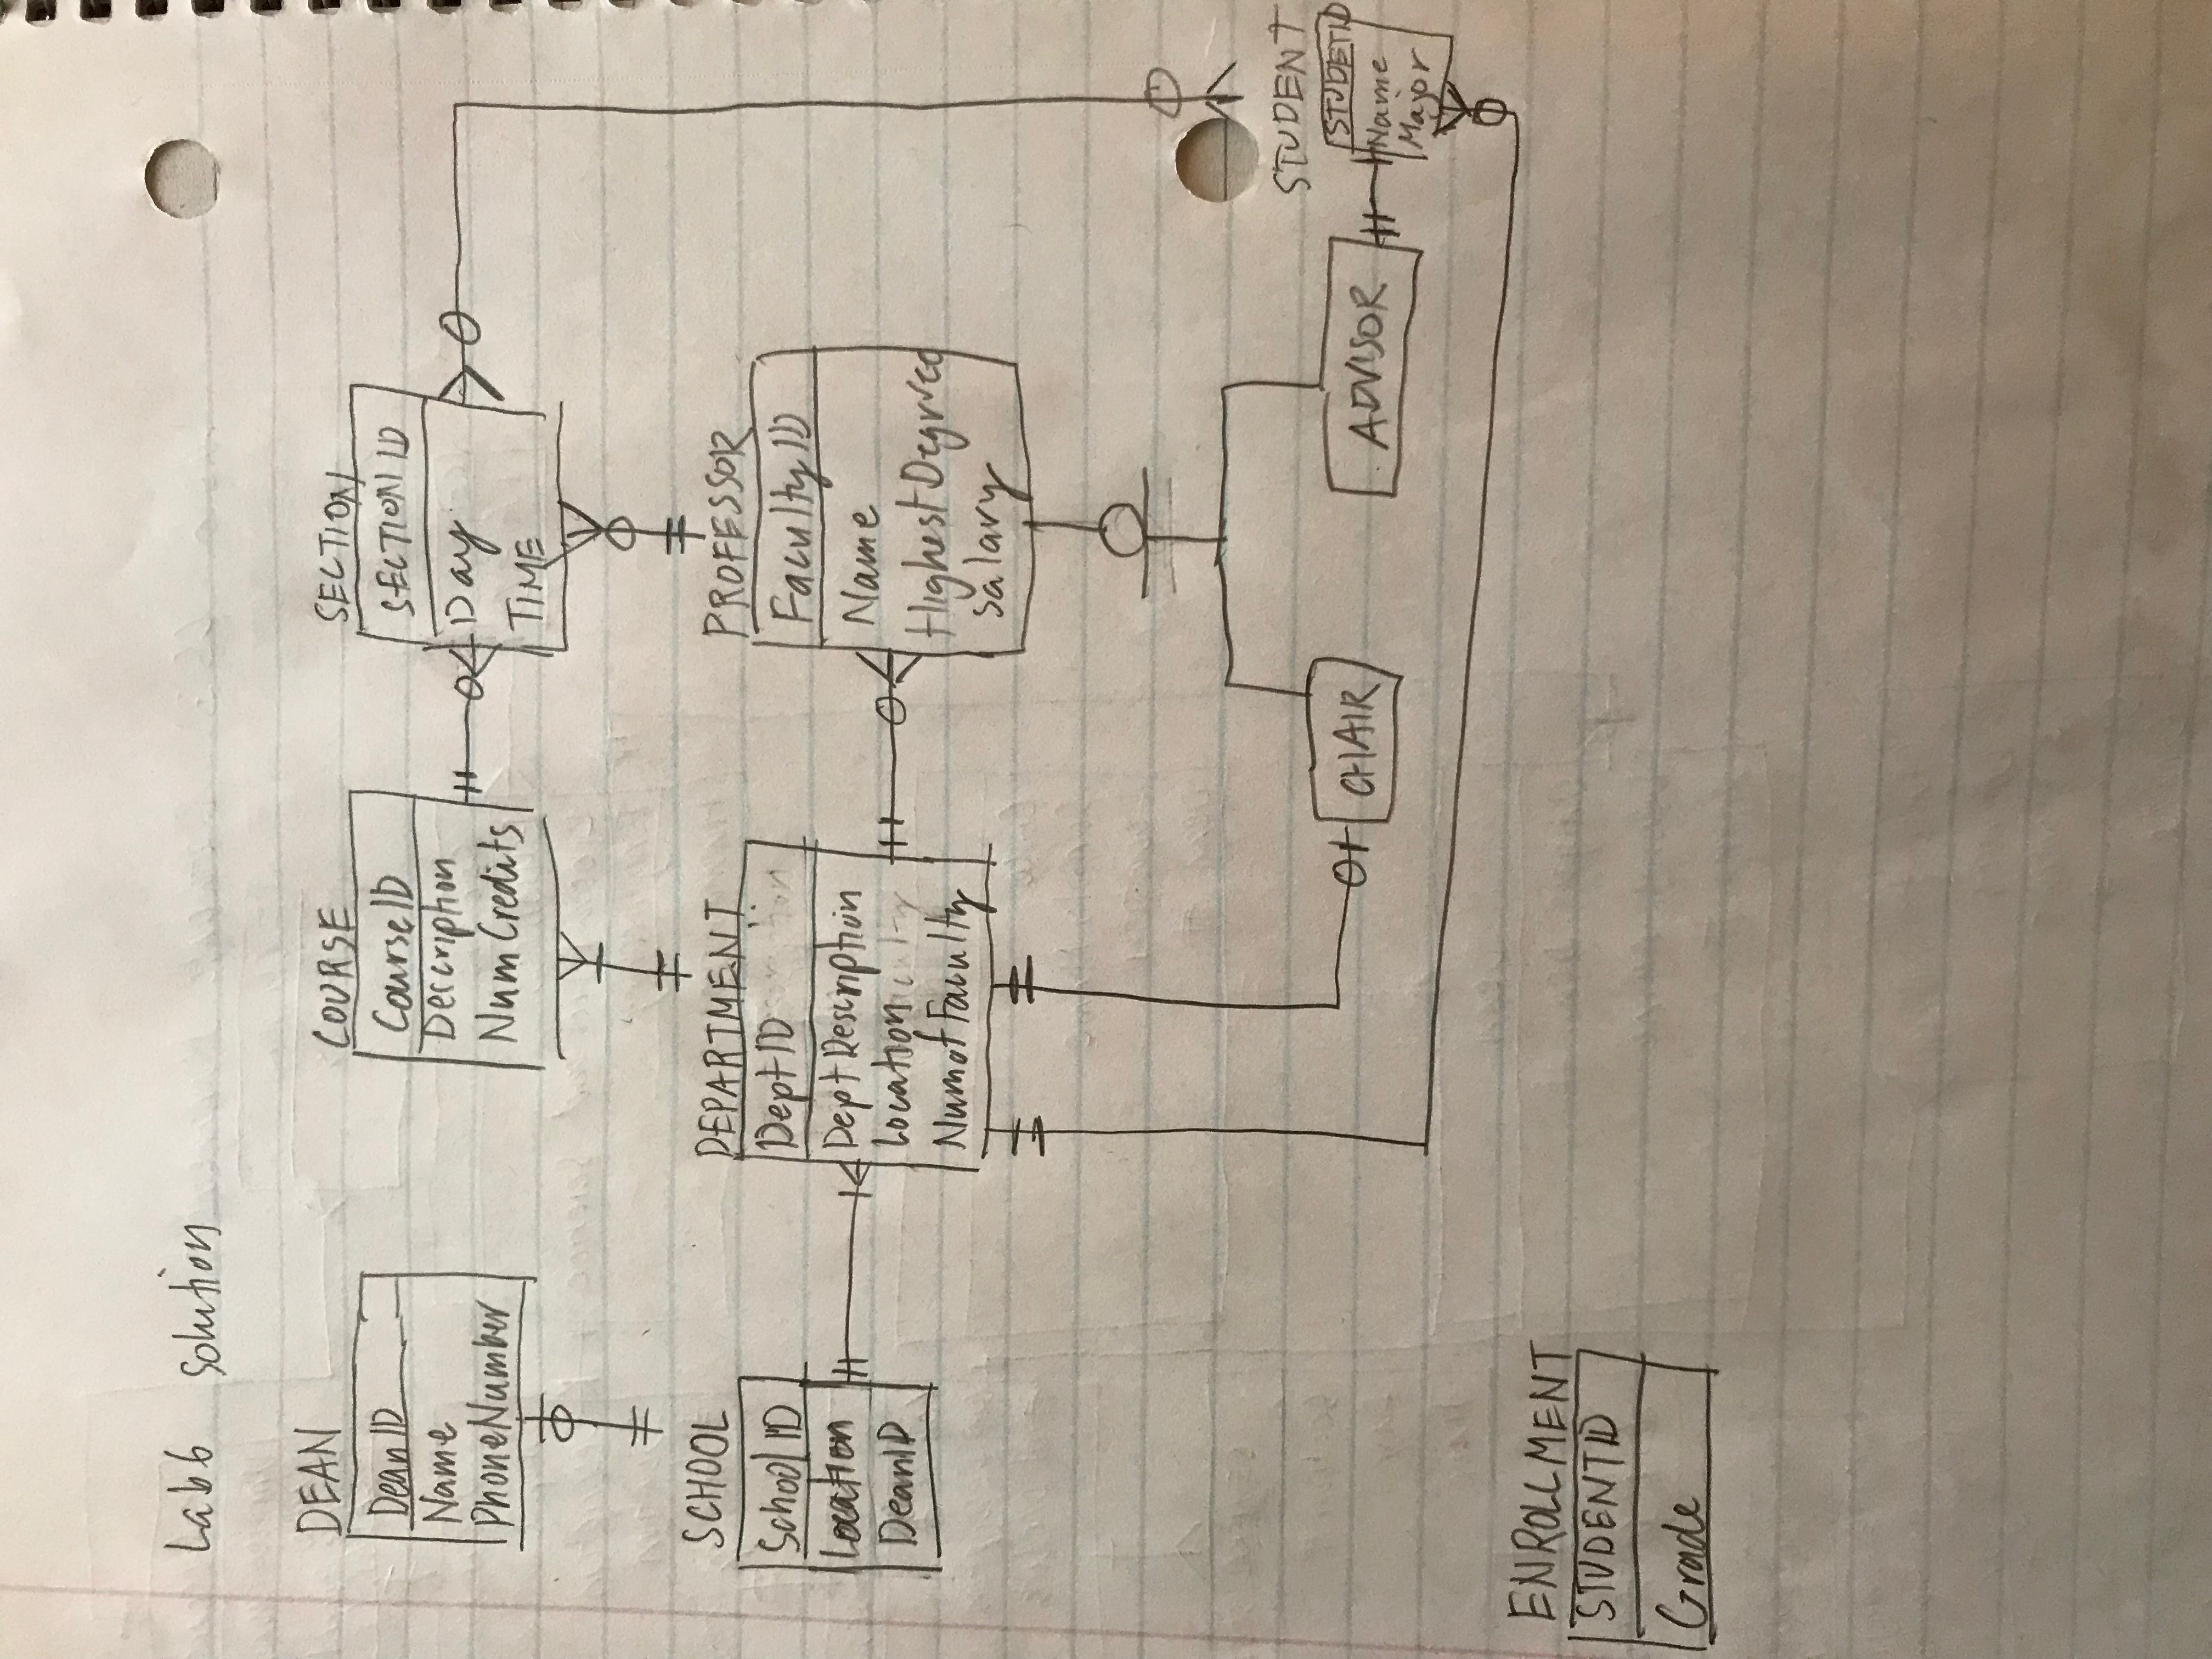 Lab6 Solution
DEAN
DeanID
Name
PhoneNumber
COURSE
CourseID
Description
NumCredits
SECTION
SECTIONID
Day
TIME
SCHOOL
SchoolID
Location
DeanID
DEPARTMENT
DeptID
DeptDescription
Location
NumofFaculty
PROFESSOR
FacultyID
Name
HighestDegree
Salary
CHAIR
ADVISOR
STUDENT
STUDETID
Name
Major
ENROLLMENT
STUDENTID
Grade